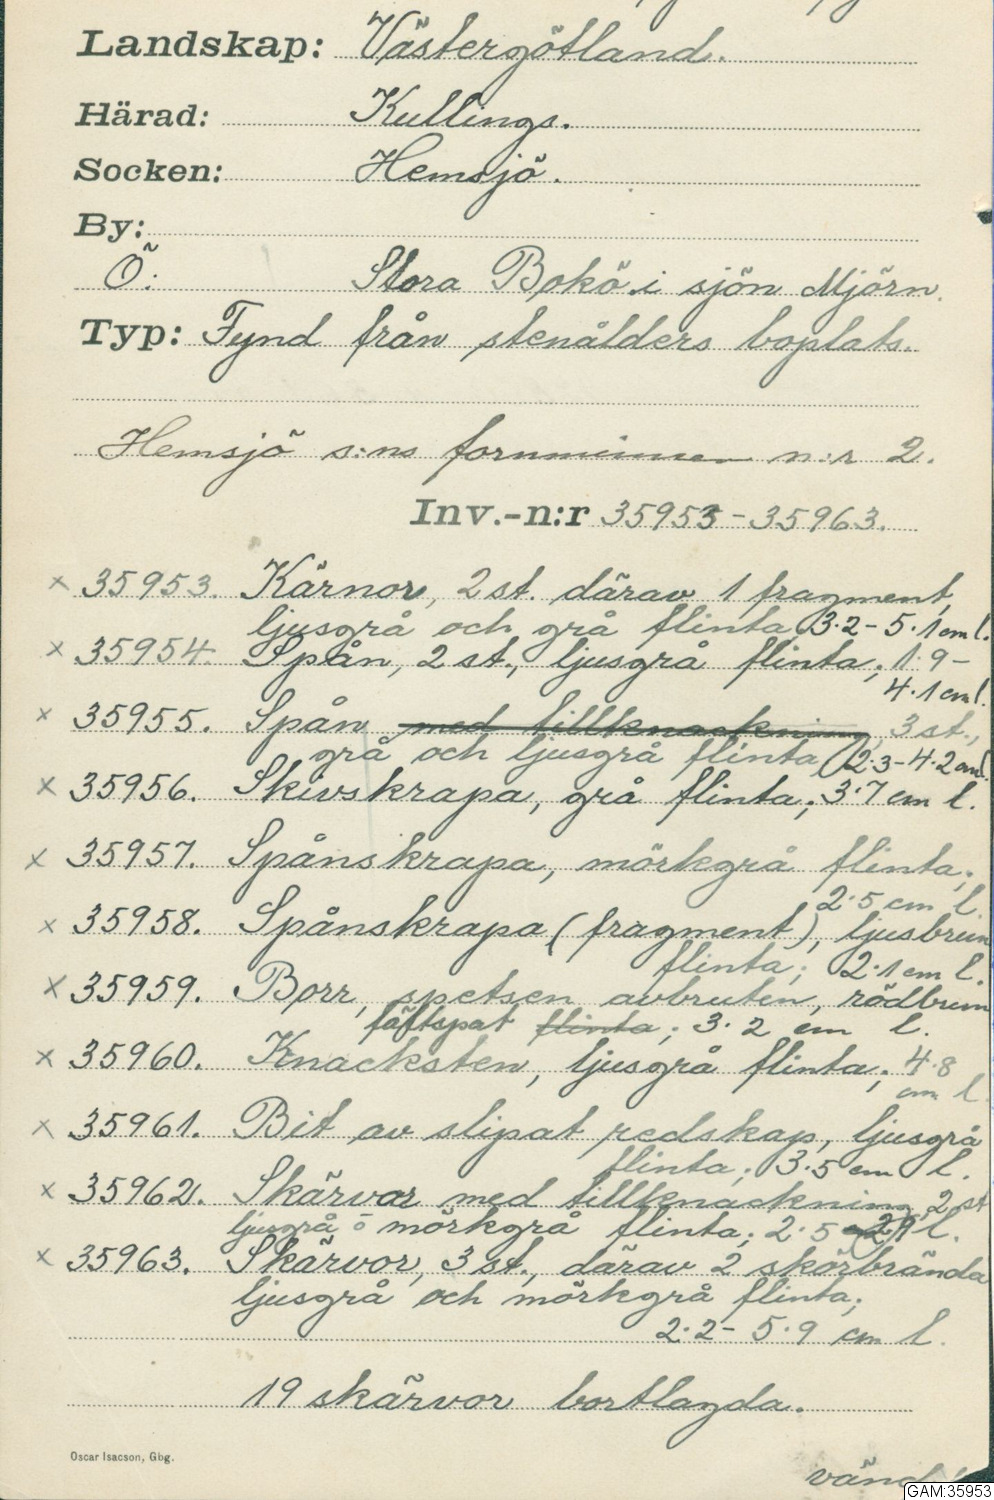 Landskap: Västergötland.
Härad: Kullings.
Socken: Hemsjö.
By:
Ö: Stora Bokö i sjön Mjörn.
Typ: Fynd från stenålders boplats.
Hemsjö s:ns fornminnen n:r 2.
Inv.-n:r 35953-35963.
× 35953. Kärnor, 2 st. därav 1 fragment,
ljusgrå och grå flinta, 3.2-5.1 cm l.
× 35954. Spån, 2 st., ljusgrå flinta; 1.9-
4.1 cm l.
× 35955. Spån med tillknackning, 3 st.,
grå och ljusgrå flinta, 2.3-4.2 cm l.
× 35956. Skivskrapa, grå flinta; 3.7 cm l.
× 35957. Spånskrapa, mörkgrå flinta;
2.5 cm l.
× 35958. Spånskrapa (fragment), ljusbrun
flinta; 2.1 cm l.
× 35959. Borr, spetsen avbruten, rödbrun
fältspat flinta; 3.2 cm l.
× 35960. Knacksten, ljusgrå flinta; 4.8
cm l.
× 35961. Bit av slipat redskap, ljusgrå
flinta; 3.5 cm l.
× 35962. Skärvor med tillknackning, 2 st
ljusgrå o mörkgrå flinta; 2.5 l.
× 35963. Skärvor, 3 st., därav 2 skörbrända
ljusgrå och mörkgrå flinta;
2.2-5.9 cm l.
19 skärvor bortlagda.
Oscar Isacson, Gbg.
vänd!
GAM:35953